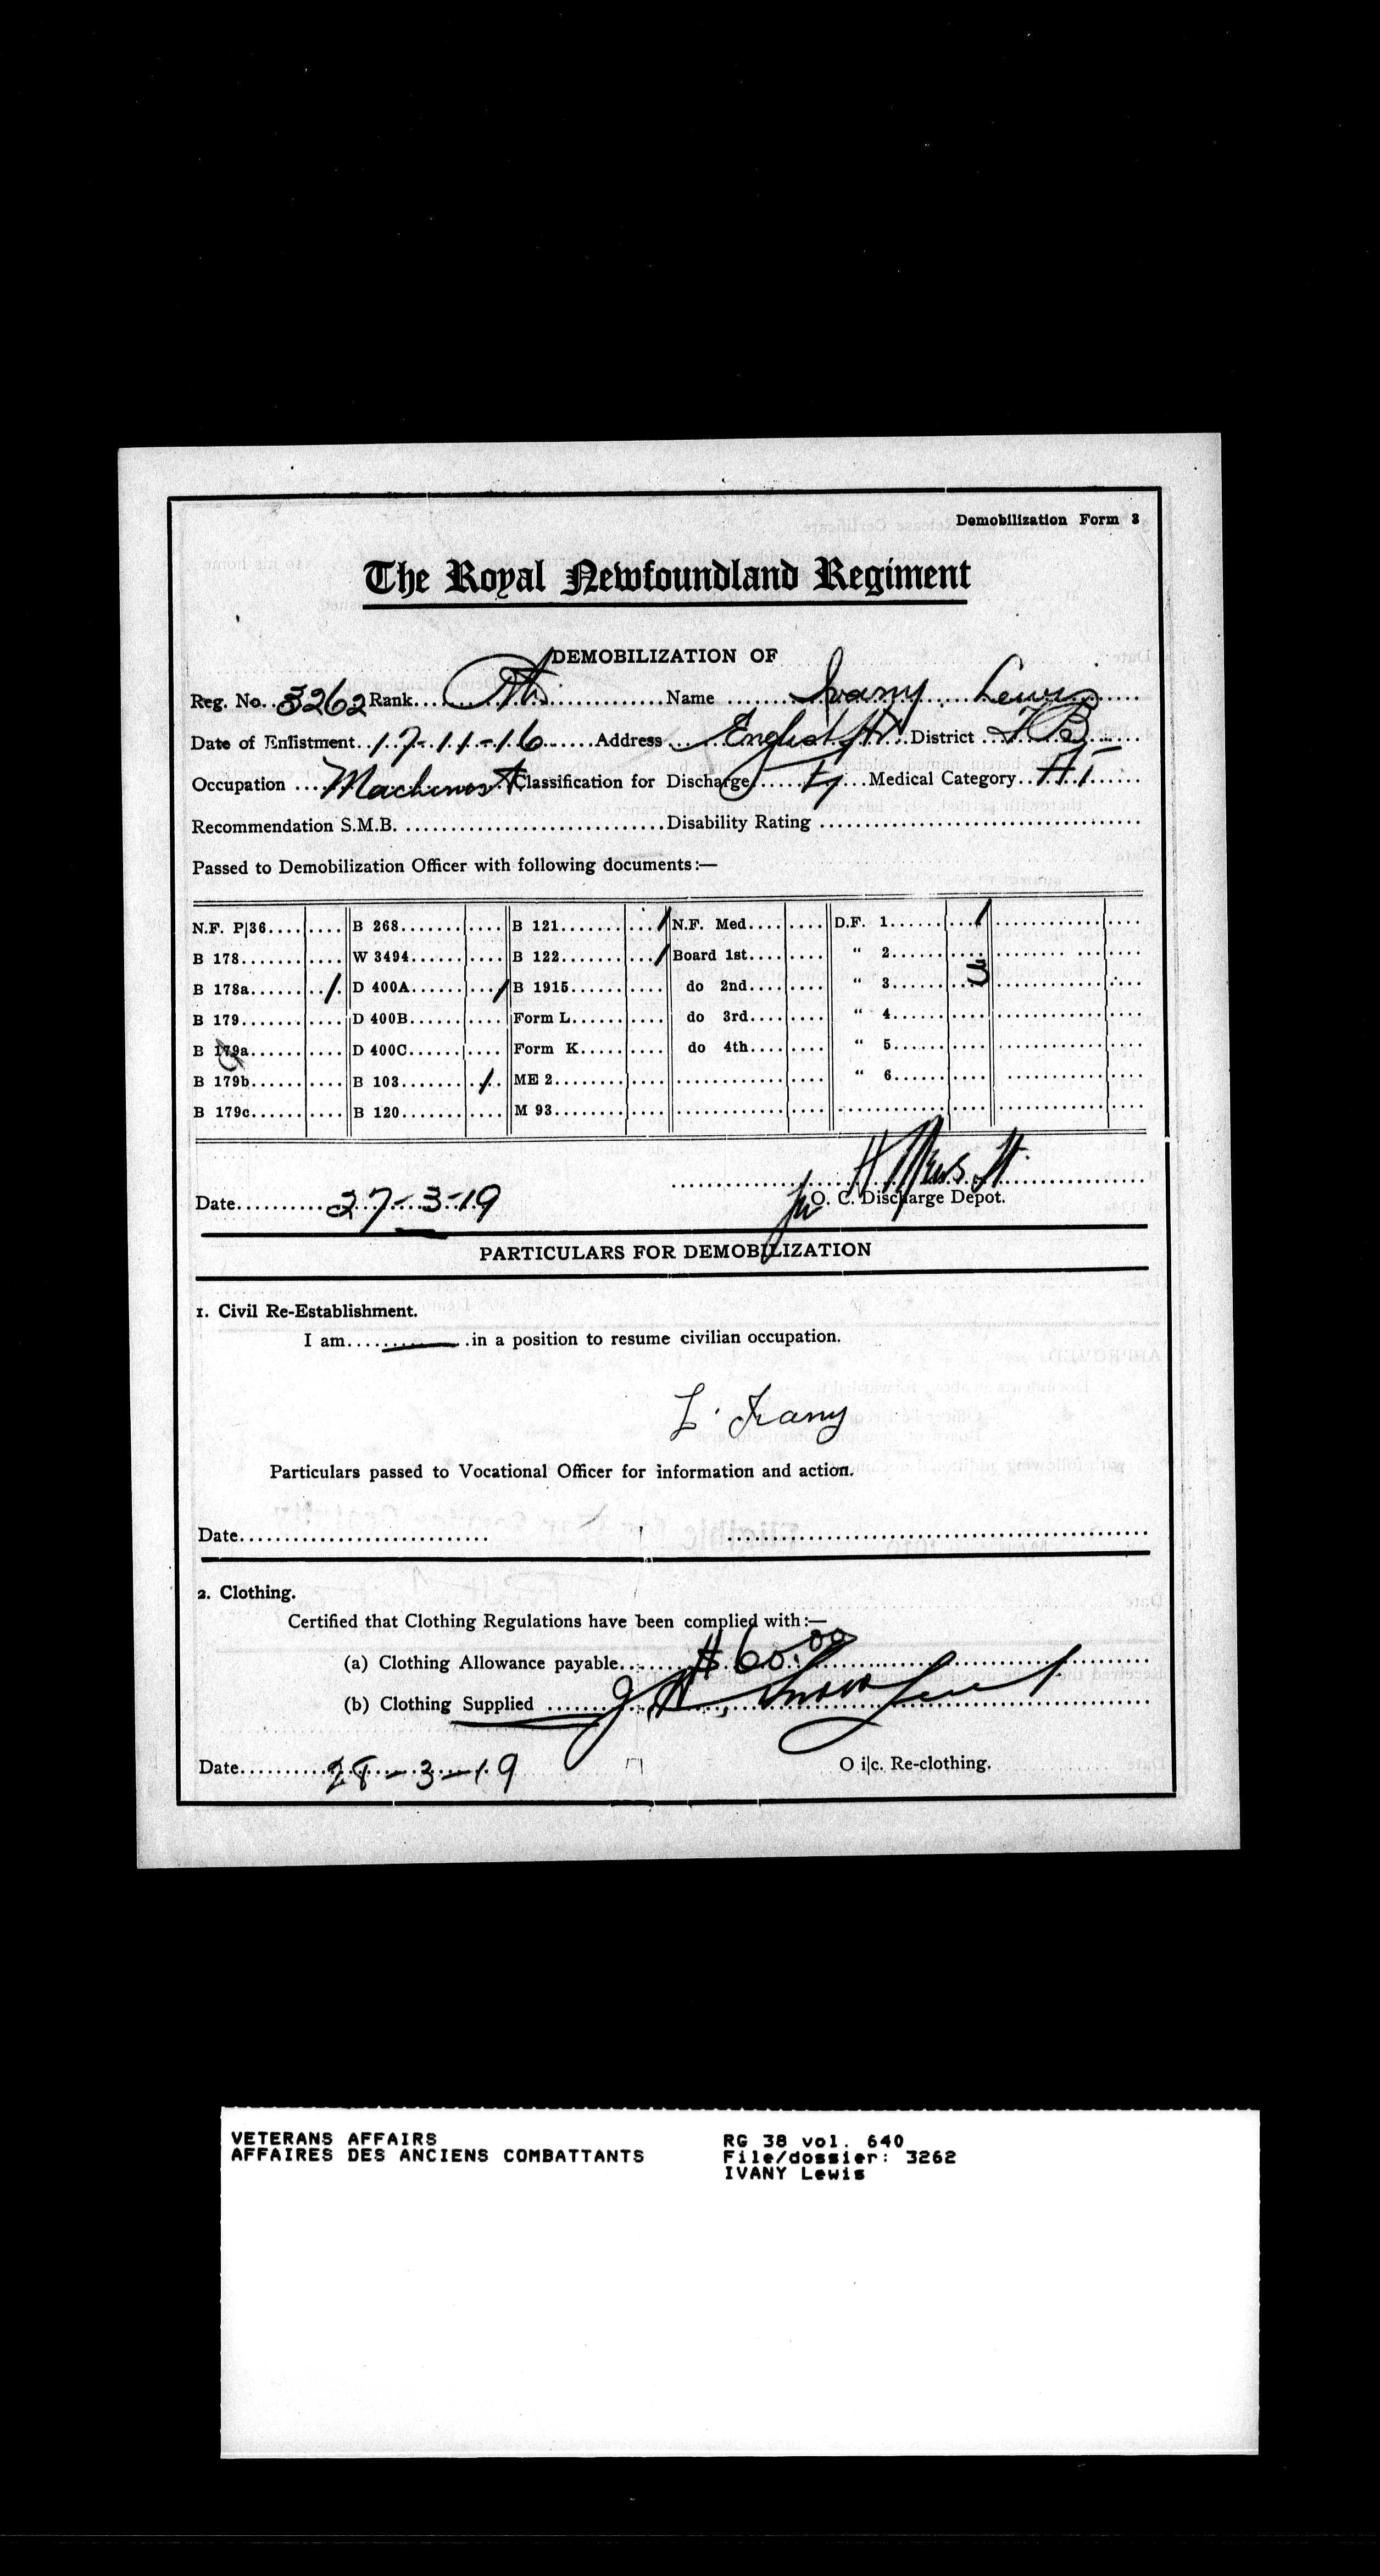 Demobilization Form 3
The Royal Newfoundland Regiment
DEMOBILIZATION OF
Reg. No. 3262 Rank Pte. Name Ivany Lewis
Date of Enlistment 17-11-16 Address English Hr District T.B.
Occupation Machinist Classification for Discharge Medical Category A1
Recommendation S.M.B. Disability Rating
Passed to Demobilization Officer with following documents:—
N.F. P|36 B 268 B 121 / N.F. Med. D.F. 1 /
B 178 W 3494 B 122 / Board 1st " 2
B 178a / D 400A / B 1915 do 2nd " 3 3
B 179 D 400B Form L do 3rd " 4
B 179a D 400C Form K do 4th " 5
B 179b B 103 / ME 2 " 6
B 179c B 120 M 93
Date 27-3-19 O. C. Discharge Depot.
PARTICULARS FOR DEMOBILIZATION
1. Civil Re-Establishment.
I am in a position to resume civilian occupation.
L. Ivany
Particulars passed to Vocational Officer for information and action.
Date
2. Clothing.
Certified that Clothing Regulations have been complied with:—
(a) Clothing Allowance payable $60.00
(b) Clothing Supplied
Date 28-3-19 O i|c. Re-clothing.
VETERANS AFFAIRS RG 38 vol. 640
AFFAIRES DES ANCIENS COMBATTANTS File/dossier: 3262
IVANY Lewis